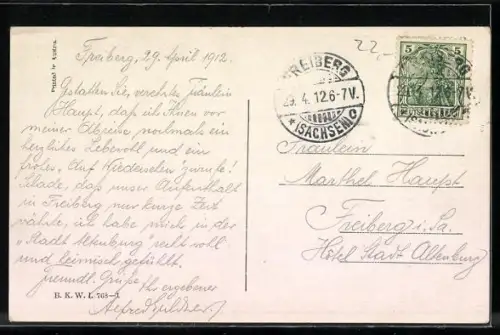 Freiberg, 29. April 1912.
Gestatten Sie, verehrtes Fräulein
Haupt, daß ich Ihnen vor
meiner Abreise nochmals ein
herzliches Lebewohl und ein
frohes „Auf Wiedersehen" zurufe!
Schade, daß unser Aufenthalt
in Freiberg nur kurze Zeit
währte, ich habe mich in der
„Stadt Altenburg" recht wohl
und heimisch gefühlt.
Freundl. Grüße Ihr ergebener
Alfred
B. K. W. I. 768-1
22.-
FREIBERG
29.4.12.6-7V.
(SACHSEN)
5 5
Fräulein
Marthel Haupt
Freiberg i. Sa.
Hôtel Stadt Altenburg